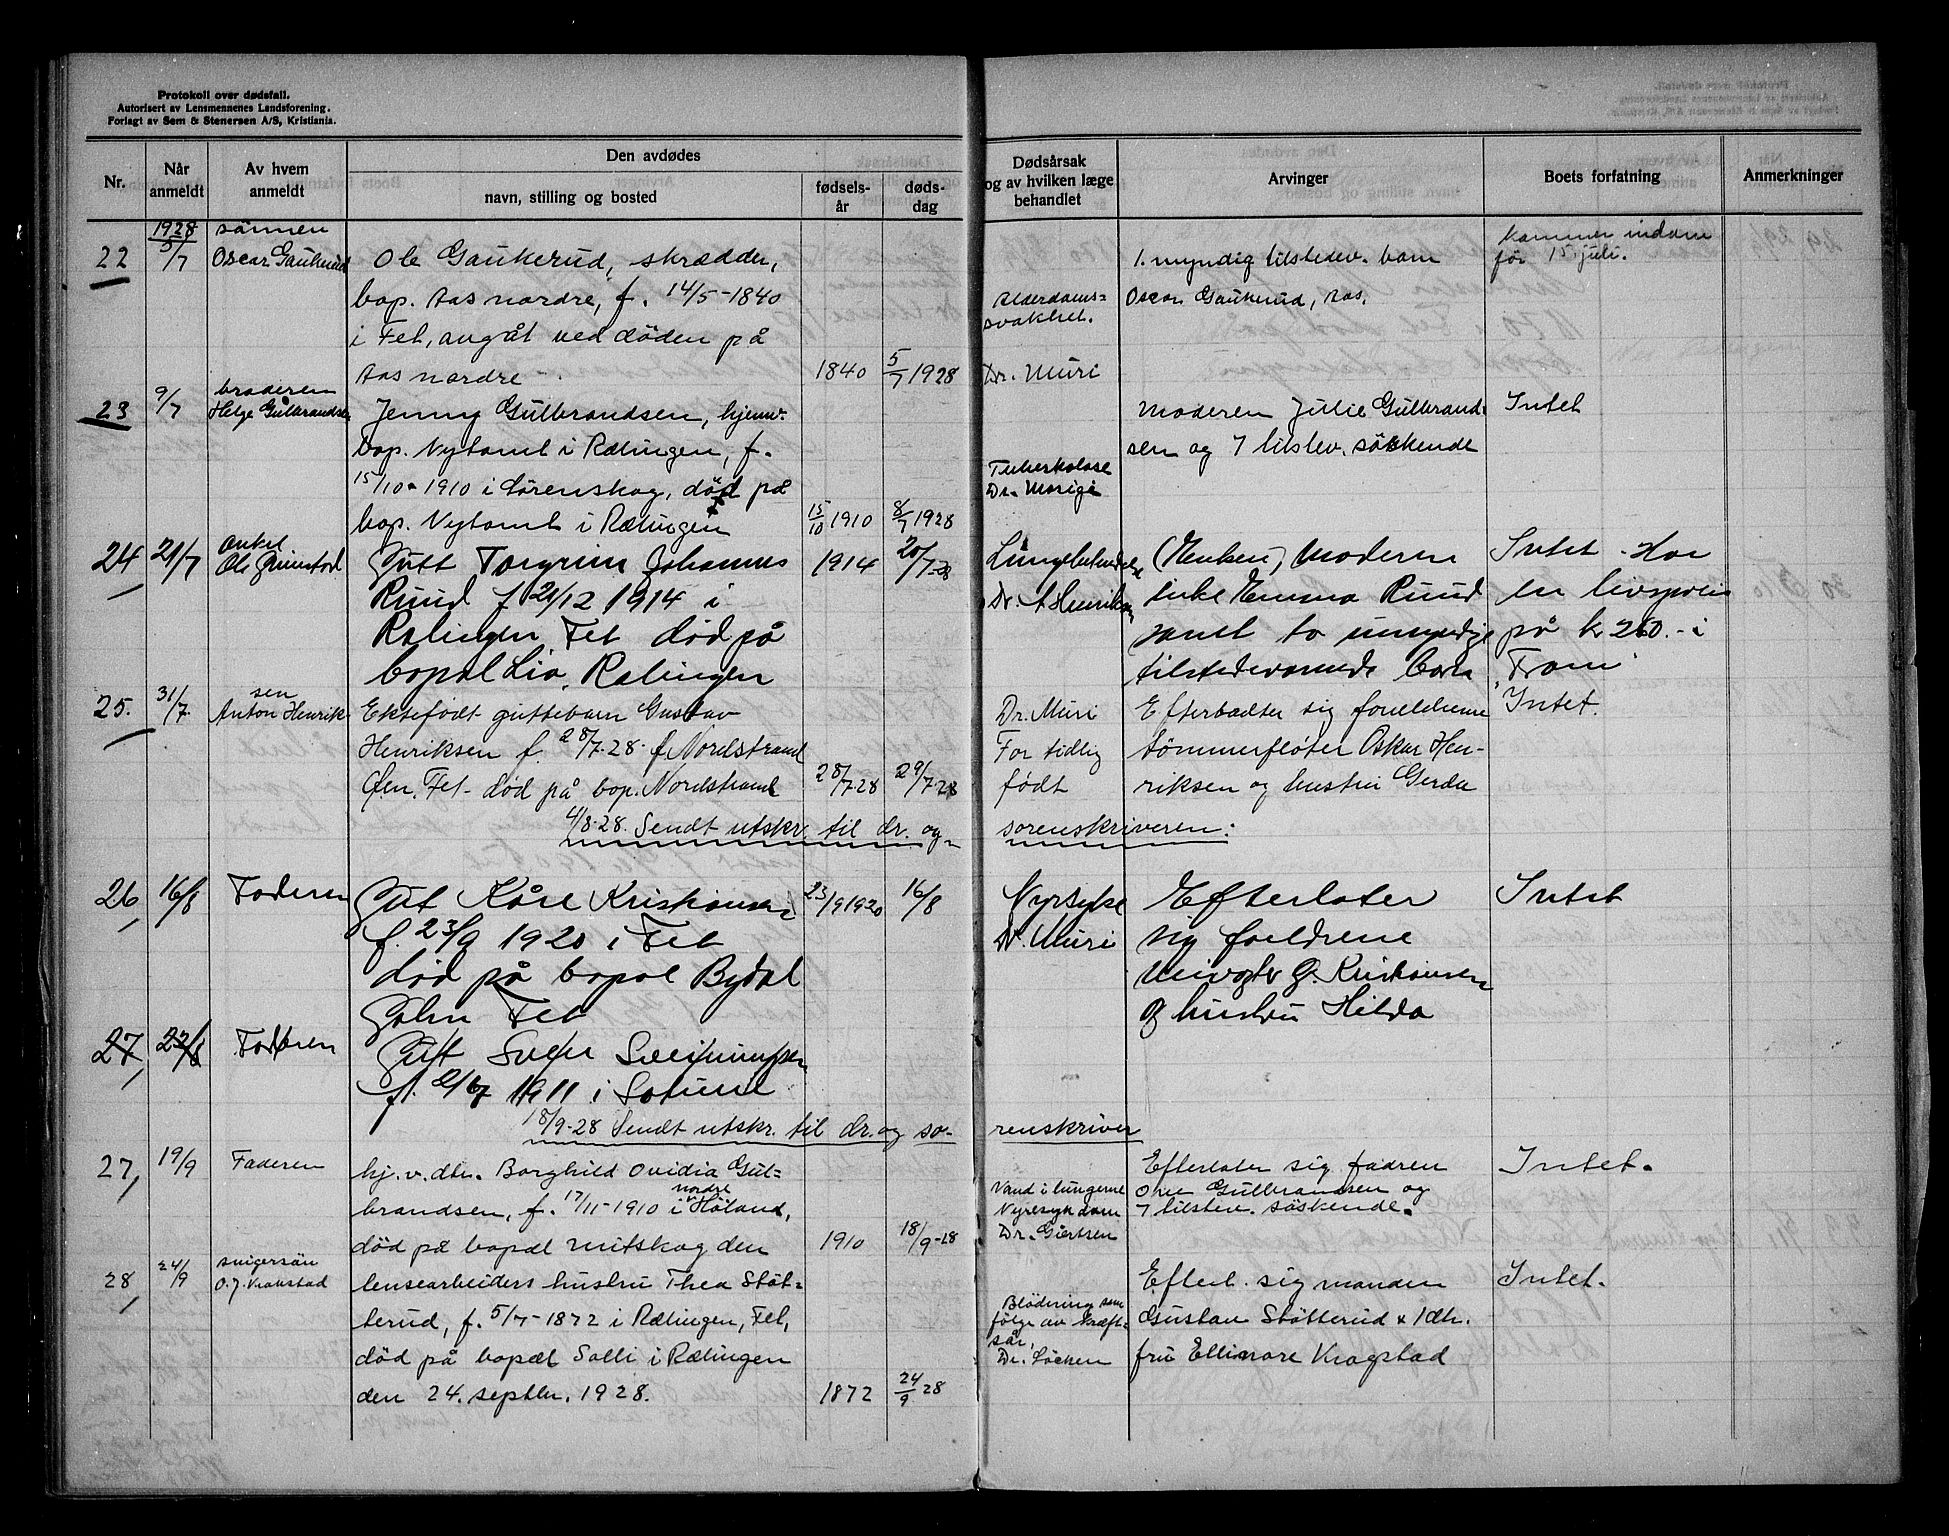 Protokoll over dødsfall.
Autorisert av Lensmennenes Landsforening.
Forlagt av Sem & Stenersen A/S, Kristiania.
Nr.
Når anmeldt
Av hvem anmeldt
Den avdødes
navn, stilling og bosted
fødsels-år
døds-dag
Dødsårsak og av hvilken læge behandlet
Arvinger
Boets forfatning
Anmerkninger
1928
22
5/7
sönnen
Oscar Gaukerud
Ole Gaukerud, skrædder,
bop. Aas nordre, f. 14/5-1840
i Fet, avgåt ved döden på
Aas nordre -
1840
5/7 1928
Alderdoms-
svakhet.
Dr. Muri
1. myndig tilstedev. barn
Oscar Gaukerud, Aas.
kommer indom
før 15 juli.
23
9/7
broderen
Helge Gulbrandsen
Jenny Gulbrandsen, hjemv.
bop. Nytomt i Rælingen, f.
15/10-1910 i Lörenskog, död på
bop. Nytomt i Rælingen
15/10 1910
8/7 1928
Tuberkolose
Dr.
Moderen Julie Gulbrand-
sen og 7 tilstev. söskende
Intet
24
21/7
onkel
Ole Grimstad
Gutt Torgrim Johannes
Ruud f 21/12 1914 i
Rælingen, Fet död på
bopæl Lia, Rælingen
1914
20/7-28
Lungebetendelse
Dr. A Henriksen
(Enken) Moderen
enke Emma Ruud
samt to umyndige
tilstedeværende barn
Intet - Har
en livspolis
på kr 260.- i
"Fram"
25.
31/7
Anton Henrik-
sen
Ektefødt guttebarn Gustav
Henriksen f. 28/7-28 f Nordstrand
Øen, Fet - død på bop. Nordstrand
28/7-28
29/7-28
Dr. Muri
For tidlig
født
Efterladter sig foreldrene
tømmerfløter Oskar Hen-
riksen og hustru Gerda
Intet.
4/8-28. Sendt utskr. til dr. og
sorenskriveren:
26
16/8
Faderen
Gut Kåre Kristiansen
f. 23/9 1920 i Fet
död på bopæl Bydal
Fet
23/9 1920
16/8
Nyrsyke
Dr. Muri
Efterlater
sig foreldrene
G. Kristiansen
og hustru Hilda
Intet
27,
27/8
Faderen
Gutt
f. 1911 i
18/9-28 Sendt utskr. til dr. og so-
renskriver
27,
19/9
Faderen
hj. v. dtr. Borghild Ovidia Gul-
brandsen, f. 17/11-1910 i nordre Höland,
död på bopæl Mitskog den
1910
18/9-28
Vand i lungerne
Nyresykdom
Dr. Giertsen
Efterlater sig fadren
Ole Gulbrandsen og
7 tilstev. söskende.
Intet.
28
24/9
svigersön
O. J. Krokstad
lensearbeiders hustru Thea Stöt-
terud, f. 5/7-1872 i Rælingen, Fet,
död på bopæl Solli i Rælingen
den 24. septbr. 1928.
1872
24/9 28
Blödning som
følge av kræft-
sår,
Dr. Löcken
Efterl. sig manden
Gustav Stötterud & 1 dtr.
fru Ellinore Krogstad
Intet.